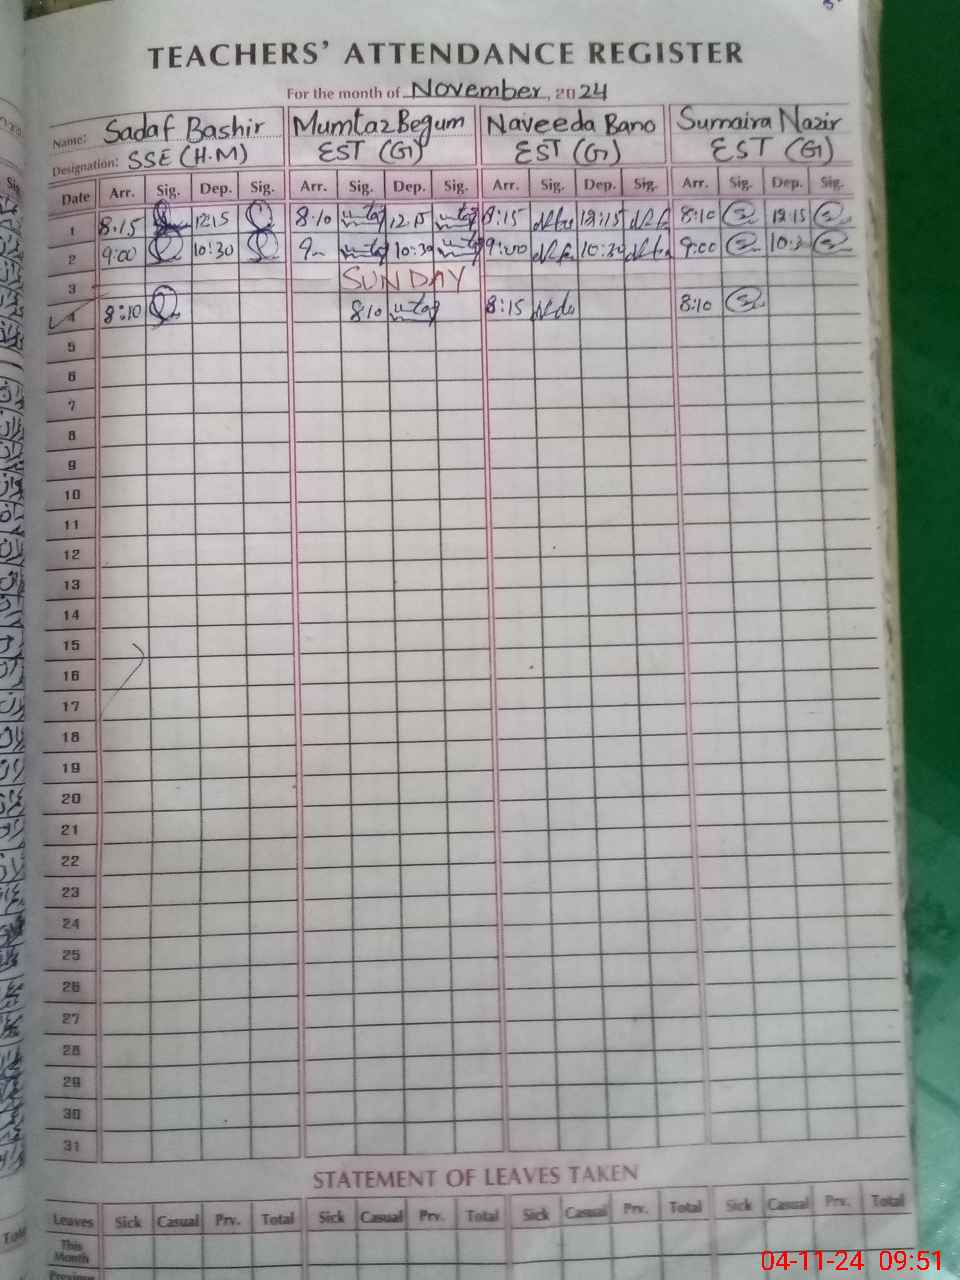 TEACHERS' ATTENDANCE REGISTER
For the month of November, 2024
Name: Sadaf Bashir Mumtaz Begum Naveeda Bano Sumaira Nazir
Designation: SSE (H.M) EST (G) EST (G) EST (G)
Date Arr. Sig. Dep. Sig. Arr. Sig. Dep. Sig. Arr. Sig. Dep. Sig. Arr. Sig. Dep. Sig.
1 8:15 12:15 8:10 12:15 8:15 12:15 8:10 12:15
2 9:00 10:30 9 10:30 9:00 10:30 9:00
3 SUNDAY
4 8:10 8:10 8:15 8:10
5
6
7
8
9
10
11
12
13
14
15
16
17
18
19
20
21
22
23
24
25
26
27
28
29
30
31
STATEMENT OF LEAVES TAKEN
Leaves Sick Casual Prv. Total Sick Casual Prv. Total Sick Casual Prv. Total Sick Casual Prv. Total
This
Month
Previous
04-11-24 09:51